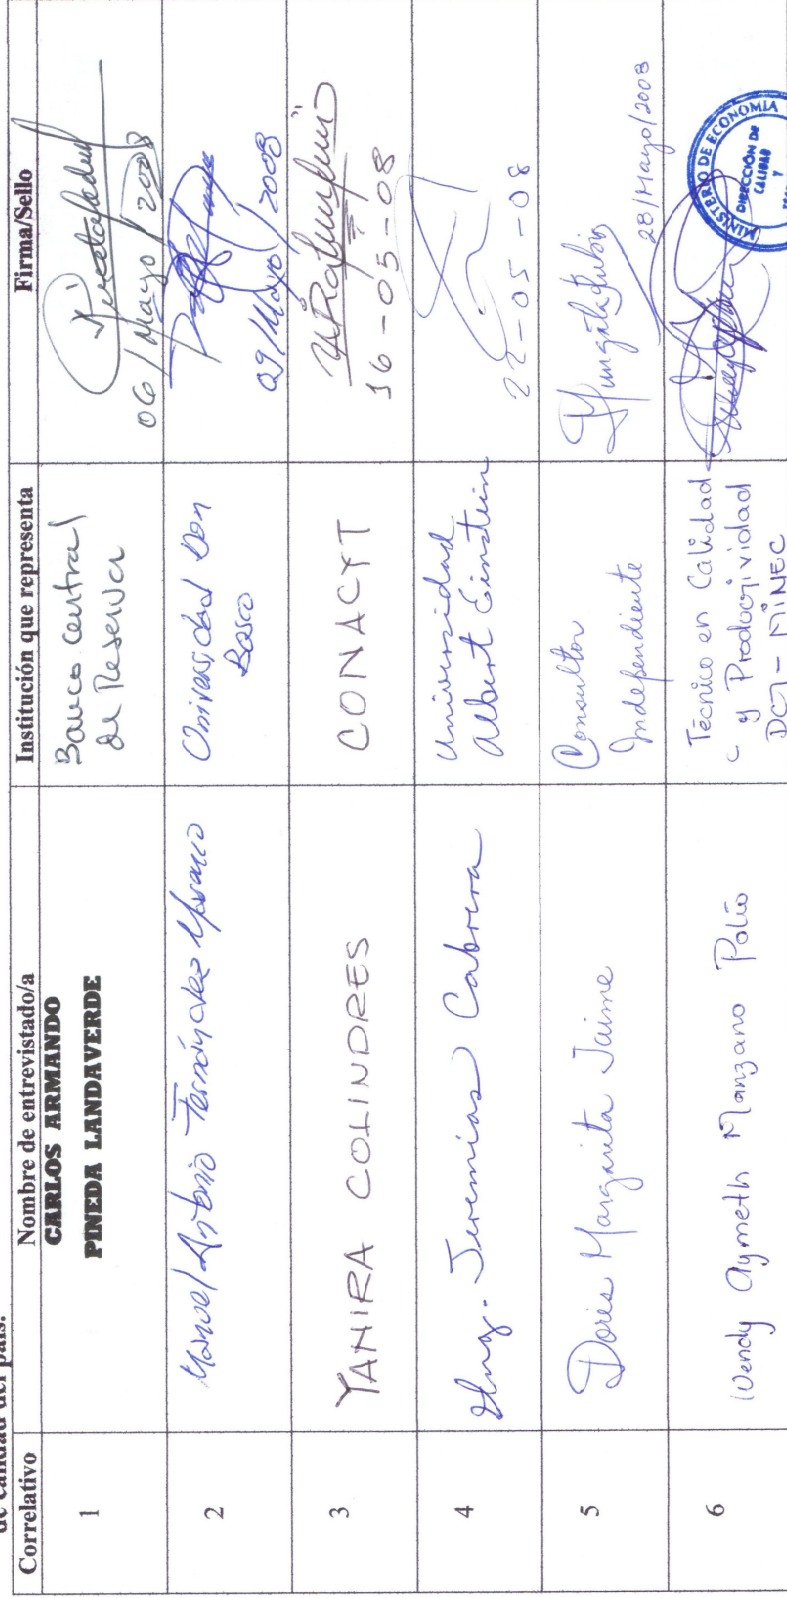 de calidad del país.
Correlativo Nombre de entrevistado/a Institución que representa Firma/Sello
1 CARLOS ARMANDO
PINEDA LANDAVERDE
Banco Central
de Reserva
06/Mayo/2008
2 Manuel Antonio Fernández
Universidad Don
Bosco
09/Mayo/2008
3 YANIRA COLINDRES CONACYT
16-05-08
4 Ing. Jeremias Cabrera
Universidad
Albert Einstein
22-05-08
5 Doris Margarita Jaime
Consultor
Independiente
28/Mayo/2008
6 Wendy Aymeth Manzano Polío
Técnico en Calidad
y Productividad
DCT - MINEC
MINISTERIO DE ECONOMIA
DIRECCIÓN DE
CALIDAD
Y